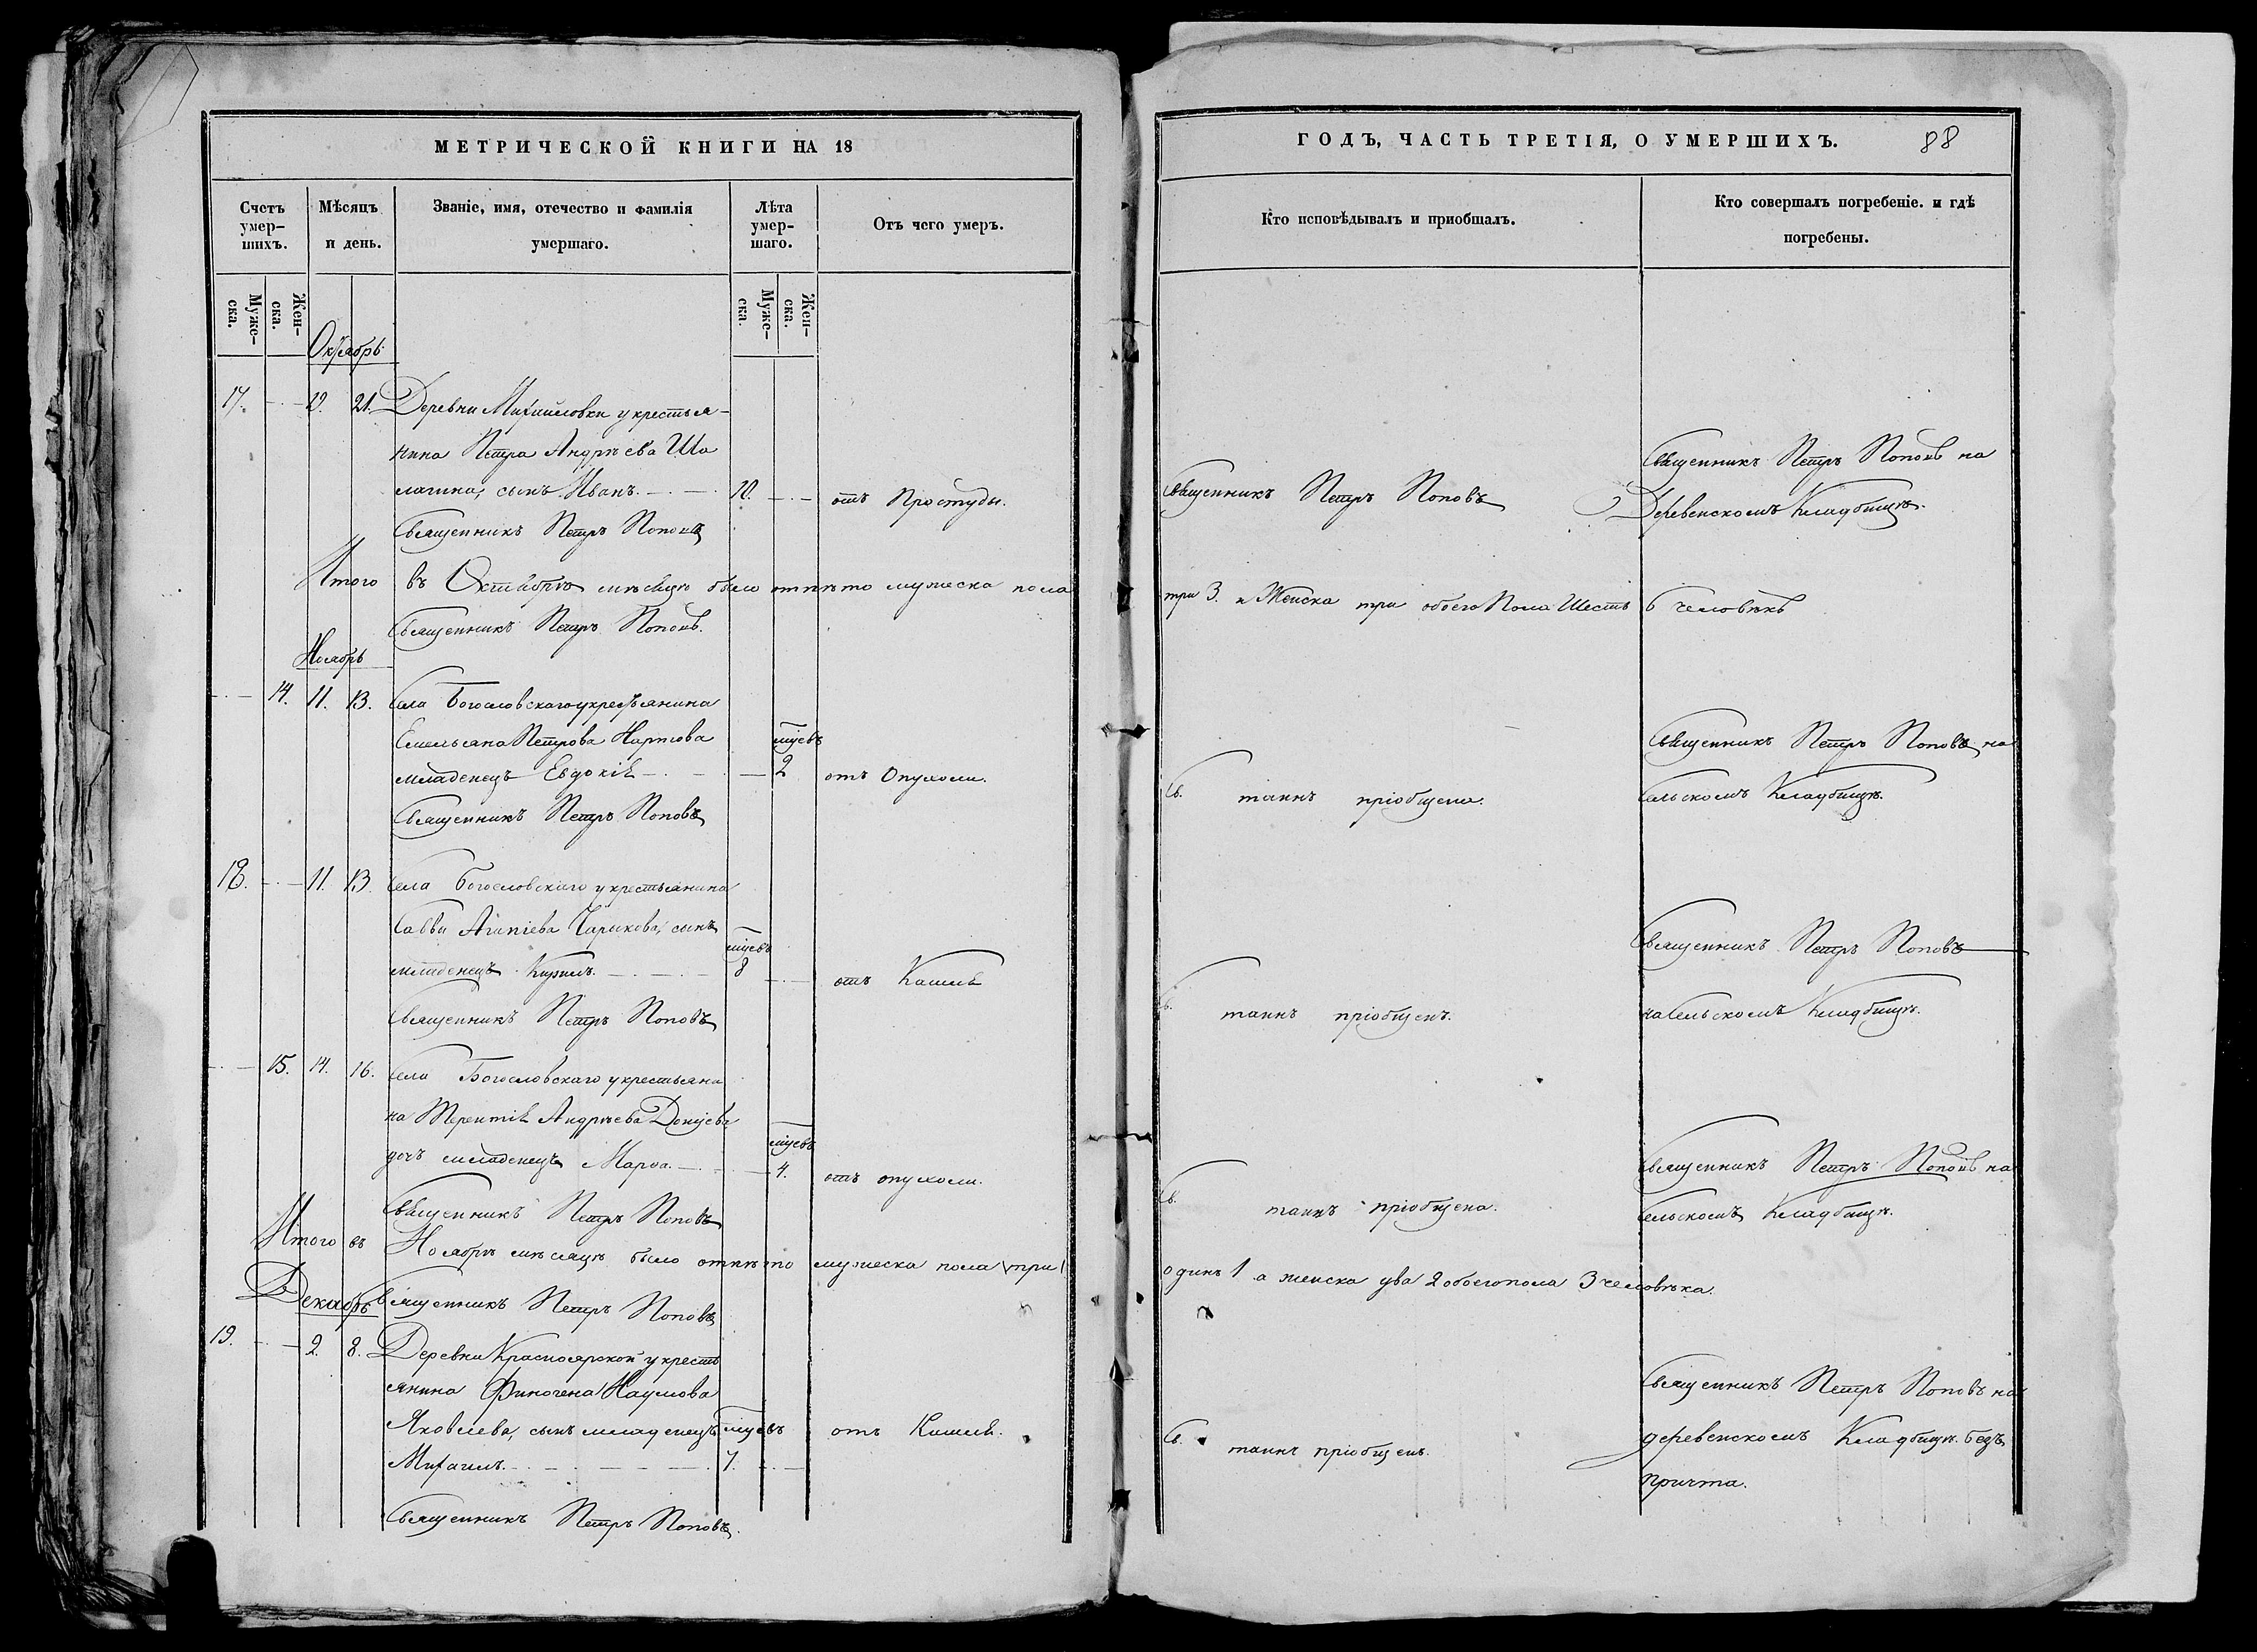 МЕТРИЧЕСКОЙ КНИГИ НА 18
Счетъ умер-шихъ.
Мѣсяцъ и день.
Званіе, имя, отечество и фамилія умершаго.
Лѣта умер-шаго.
Отъ чего умеръ.
Муже-ска.
Жен-ска.
Муже-ска.
Жен-ска.
Октябрь
17. 19. 21. Деревни Михайловки у крестья-
нина Петра Андрѣева Ша
лагина, сынъ Иванъ. 10. отъ Простуды.
Священникъ Петръ Поповъ
Итого въ Октябрѣ мѣсяцѣ было отпѣто мужеска пола
Священникъ Петръ Поповъ.
Ноябрь
14. 11. 13. Села Богословскаго у крестьянина
Емельяна Петрова
мцевъ
младенецъ Евдокія 2 отъ Опухоли.
Священникъ Петръ Поповъ
18. 11. 13. Села Богословскаго у крестьянина
Саввы Агапіева Чарыкова, сынъ
мцевъ
младенецъ Кирилъ 8 отъ Кашля
Священникъ Петръ Поповъ
15. 14. 16. Села Богословскаго у крестьяни
на Терентія Андрѣева Донцева
мцевъ
дочь младенецъ Марѳа. 4. отъ опухоли.
Священникъ Петръ Поповъ
Итого въ Ноябрѣ мѣсяцѣ было отпѣто мужеска пола (три)
Декабрь
Священникъ Петръ Поповъ
19. 2. 8. Деревни Красноярской у кресть
янина Финогена Наумова
Яковлева, сынъ младенецъ мцевъ отъ Кашля.
Михаилъ. 7.
Священникъ Петръ Поповъ.
ГОДЪ, ЧАСТЬ ТРЕТІЯ, О УМЕРШИХЪ. 88
Кто исповѣдывалъ и пріобщалъ.
Кто совершалъ погребеніе. и гдѣ погребены.
Священникъ Петръ Поповъ
Священникъ Петръ Поповъ на
Деревенскомъ Кладбищѣ.
три 3. а Женска три обоего Пола Шесть 6 человѣкъ
Св. таинъ пріобщена.
Священникъ Петръ Поповъ на
Сельскомъ Кладбищѣ.
Св. таинъ пріобщенъ.
Священникъ Петръ Поповъ
на Сельскомъ Кладбищѣ.
Св. таинъ пріобщена.
Священникъ Петръ Поповъ на
Сельскомъ Кладбищѣ.
одинъ 1 а женска два 2 обоего пола 3 человѣка.
Св. таинъ пріобщенъ.
Священникъ Петръ Поповъ на
деревенскомъ Кладбищѣ. безъ
причта.